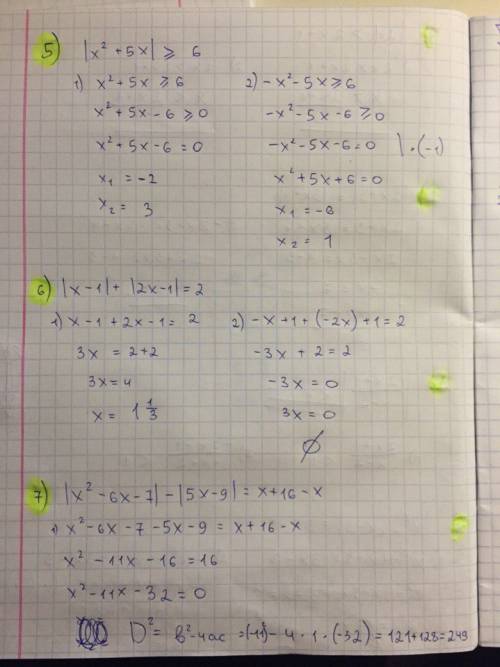 5) |x² + 5x| ⩾ 6
1) x² + 5x ⩾ 6
x² + 5x - 6 ⩾ 0
x² + 5x - 6 = 0
x₁ = -2
x₂ = 3
2) -x² - 5x ⩾ 6
-x² - 5x - 6 ⩾ 0
-x² - 5x - 6 = 0 | · (-1)
x² + 5x + 6 = 0
x₁ = -6
x₂ = 1
6) |x - 1| + |2x - 1| = 2
1) x - 1 + 2x - 1 = 2
3x = 2 + 2
3x = 4
x = 1 1/3
2) -x + 1 + (-2x) + 1 = 2
-3x + 2 = 2
-3x = 0
3x = 0
∅
7) |x² - 6x - 7| - |5x - 9| = x + 16 - x
1) x² - 6x - 7 - 5x - 9 = x + 16 - x
x² - 11x - 16 = 16
x² - 11x - 32 = 0
D² = в² - 4ас = (-11)² - 4 · 1 · (-32) = 121 + 128 = 249